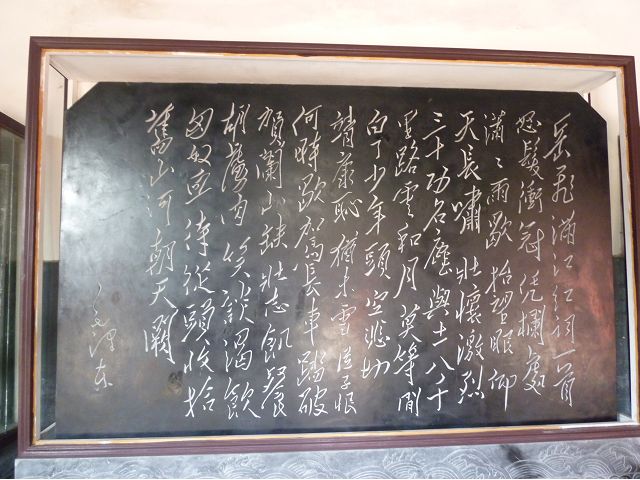 岳飛滿江紅詞一首
怒髮衝冠凭欄處
瀟々雨歇抬望眼仰
天長嘯壯懷激烈
三十功名塵與土八千
里路云和月莫等閒
白了少年頭空悲切
靖康恥猶未雪臣子恨
何時歇駕長車踏破
賀蘭山缺壯志飢餐
胡虜肉笑談渴飲
匈奴血待從頭收拾
舊山河朝天闕
毛泽东